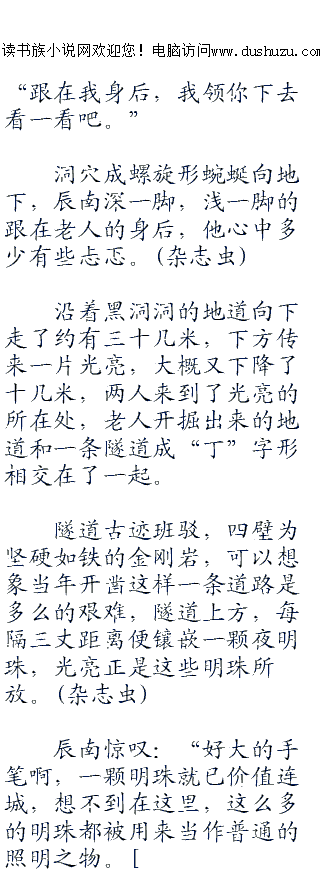 读书族小说网欢迎您！电脑访问www.dushuzu.com
“跟在我身后，我领你下去
看一看吧。”
洞穴成螺旋形蜿蜒向地
下，辰南深一脚，浅一脚的
跟在老人的身后，他心中多
少有些忐忑。(杂志虫)
沿着黑洞洞的地道向下
走了约有三十几米，下方传
来一片光亮，大概又下降了
十几米，两人来到了光亮的
所在处，老人开掘出来的地
道和一条隧道成“丁”字形
相交在了一起。
隧道古迹班驳，四壁为
坚硬如铁的金刚岩，可以想
象当年开凿这样一条道路是
多么的艰难，隧道上方，每
隔三丈距离便镶嵌一颗夜明
珠，光亮正是这些明珠所
放。(杂志虫)
辰南惊叹：“好大的手
笔啊，一颗明珠就已价值连
城，想不到在这里，这么多
的明珠都被用来当作普通的
照明之物。[